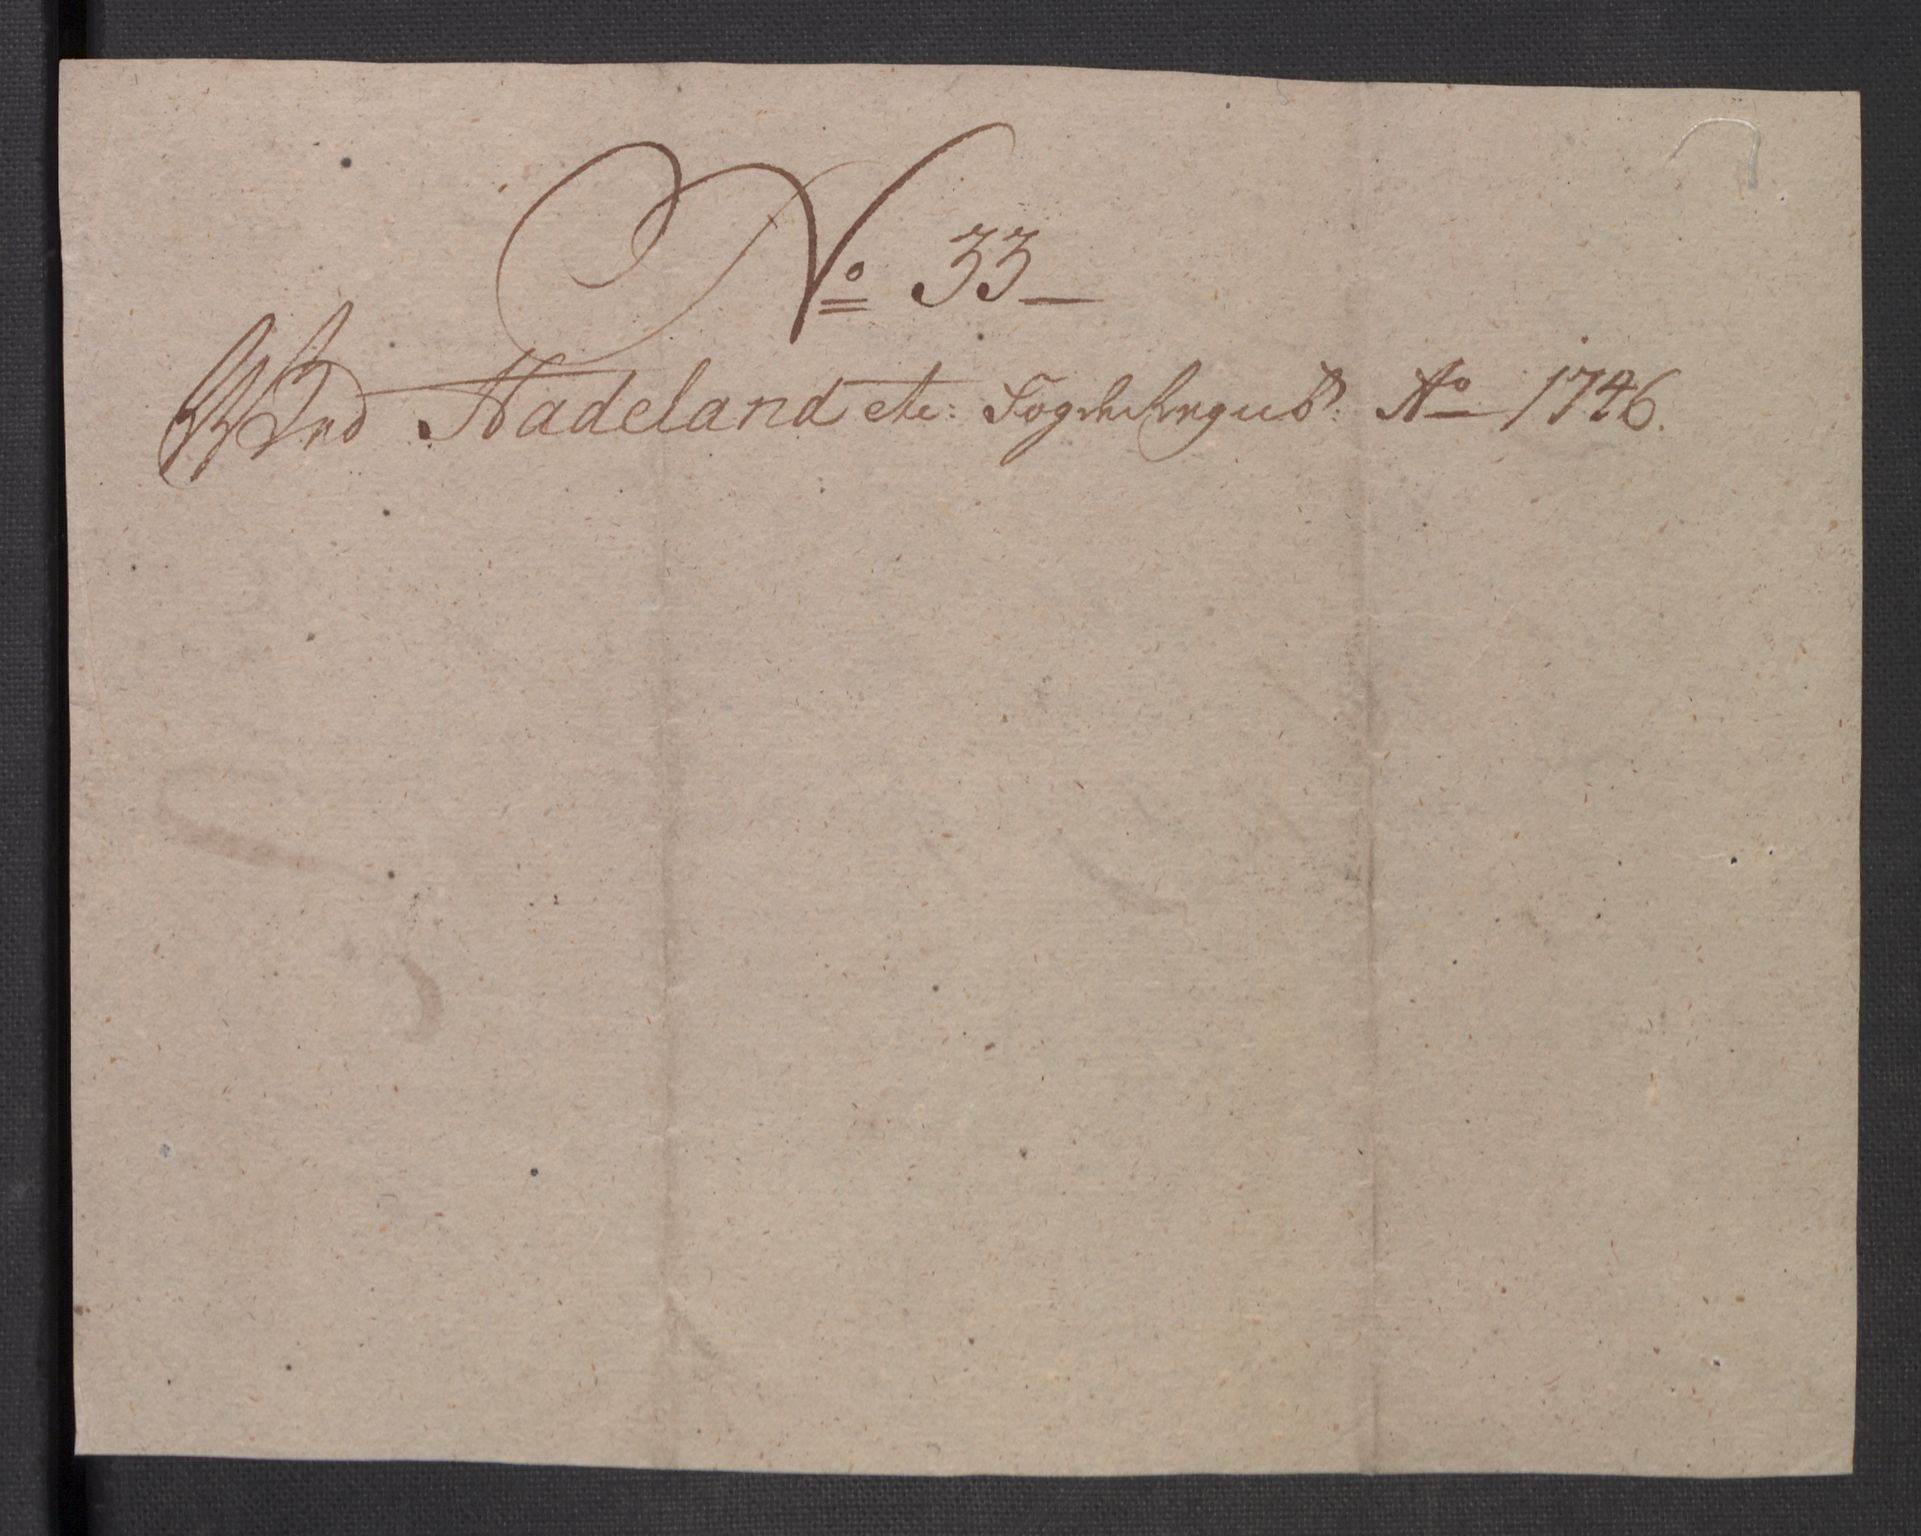 No 33
Ved Hadeland etc: Fogderregnsk: Ao 1746.